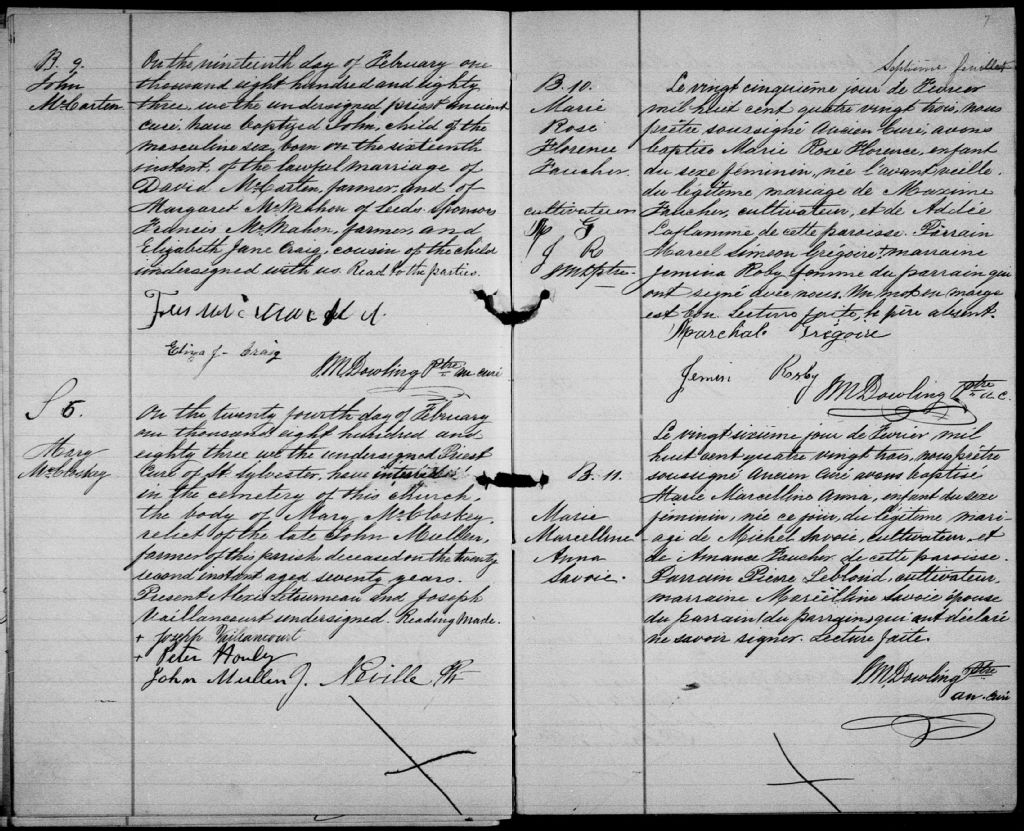 B. 9.
John
McCarten
On the nineteenth day of February one
thousand eight hundred and eighty
three we the undersigned priest ancient
curé, have baptized John, child of the
masculine sex, born on the sixteenth
instant, of the lawful marriage of
David McCarten, farmer and of
Margaret McMahon of Leeds. Sponsors
Francis McMahon, farmer, and
Elizabeth Jane Craig, cousin of the child
undersigned with us. Read to the parties.
Eliza J. Craig
J.M Dowling Ptre an curé
S 5.
Mary
McCloskey
On the twenty fourth day of February
one thousand eight hundred and
eighty three we the undersigned Priest
Curé of St Sylvester, have interred
in the cemetery of this church,
the body of Mary McCloskey,
relict of the late John Mullen,
farmer of this parish deceased on the twenty
second instant aged seventy years.
Present Alexis Létourneau and Joseph
Vaillancourt undersigned. Reading Made.
+ Joseph Vaillancourt
+ Peter Houly
John Mullen J. Neville Ptr
7
Septième feuillet
B. 10.
Marie
Rose
Florence
Faucher
cultivateur
M G
J R
JMD ptre
Le vingt cinquième jour de Fevrier
mil huit cent quatre vingt trois, nous
prêtre soussigné Ancien Curé, avons
baptisé Marie Rose Florence, enfant
du sexe féminin, née l'avant veille
du légitime mariage de Maxime
Faucher, cultivateur, et de Adélée
Laflamme de cette paroisse. Parrain
Marcel Simson Grégoire + marraine
Jemina Roby femme du parrain qui
ont signé avec nous. Un mot en marge
est bon. Lecture faite, le père absent.
Marchal Grégoire
Jemin Roby
J.M Dowling Ptre a.c.
B. 11.
Marie
Marcelline
Anna
Savoie.
Le vingt sixième jour de Fevrier mil
huit cent quatre vingt trois, nous prêtre
soussigné ancien curé avons baptisé
Marie Marcelline Anna, enfant du sexe
féminin, née ce jour, du légitime mari-
age de Michel Savoie, cultivateur, et
de Amanda Faucher de cette paroisse.
Parrain Pierre Leblond, cultivateur,
marraine Marcelline Savoie épouse
du parrain qui ont déclaré
ne savoir signer. Lecture faite.
J.M Dowling Ptre
an. curé